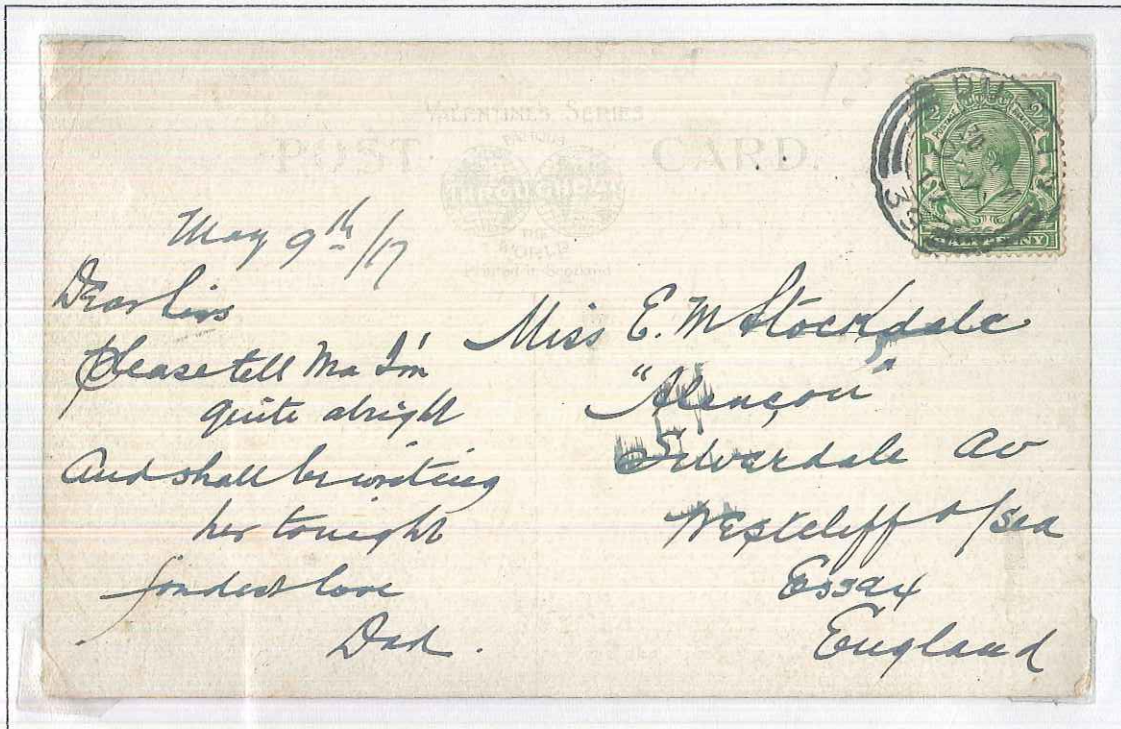 VALENTINE'S SERIES
POST CARD.
FAMOUS
THROUGHOUT
THE
WORLD
Printed in Scotland
May 9th/17
Dear Liss
Please tell Ma I'm
quite alright
And shall be writing
her tonight
fondest love
Dad.
Miss E. M Stockdale
"Alençon"
Silverdale Av
Westcliff o/sea
Essex
England